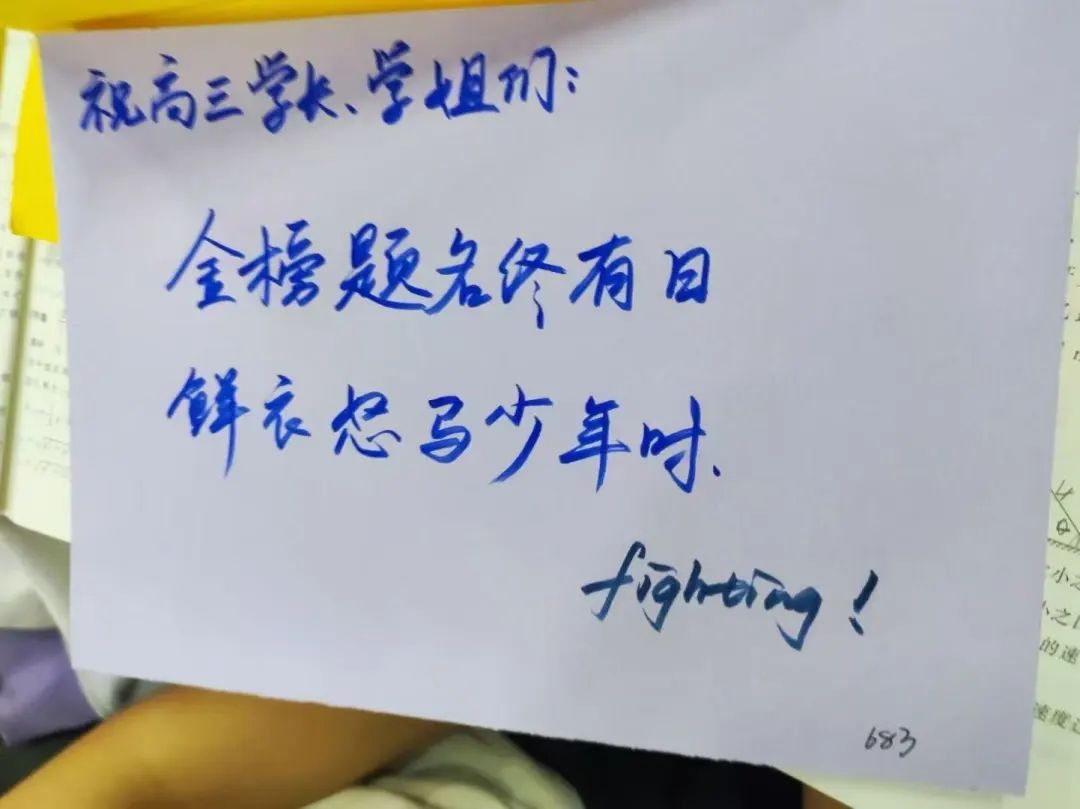 祝高三学长、学姐们：
金榜题名终有日
鲜衣怒马少年时.
fighting!
683
小之
的速
速度